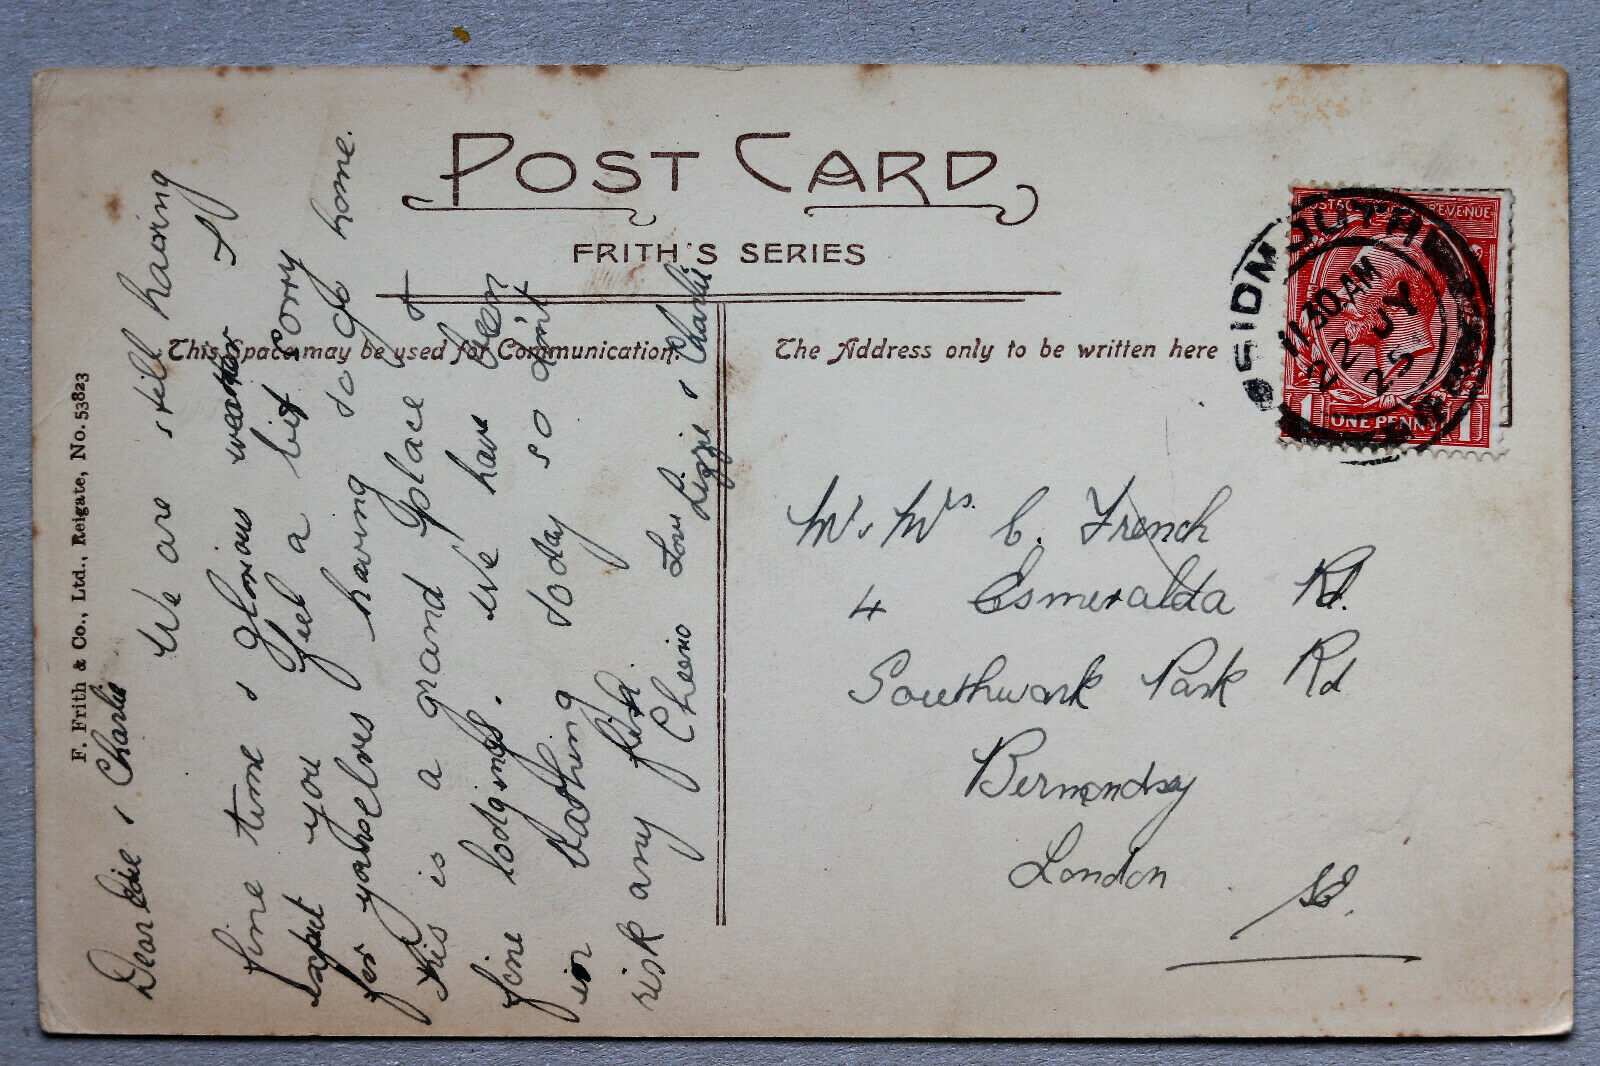 POST CARD
FRITH'S SERIES
This Space may be used for Communication.
The Address only to be written here
F. Frith & Co., Ltd., Reigate, No. 53823
Dear Edie & Charlie
We are still having
fine time & glorious weather I
expect you feel a bit sorry
for yourselves having to go home.
This is a grand place &
fine lodgings. We have been
in bathing today so don't
risk any
Cheerio Love
Lizzie & Charlie
SIDMOUTH
11 30 AM
22 JY
25
POSTAGE REVENUE
1 ONE PENNY 1
Mr & Mrs. C. French
4 Esmeralda Rd.
Southwark Park Rd
Bermondsey
London
SE.